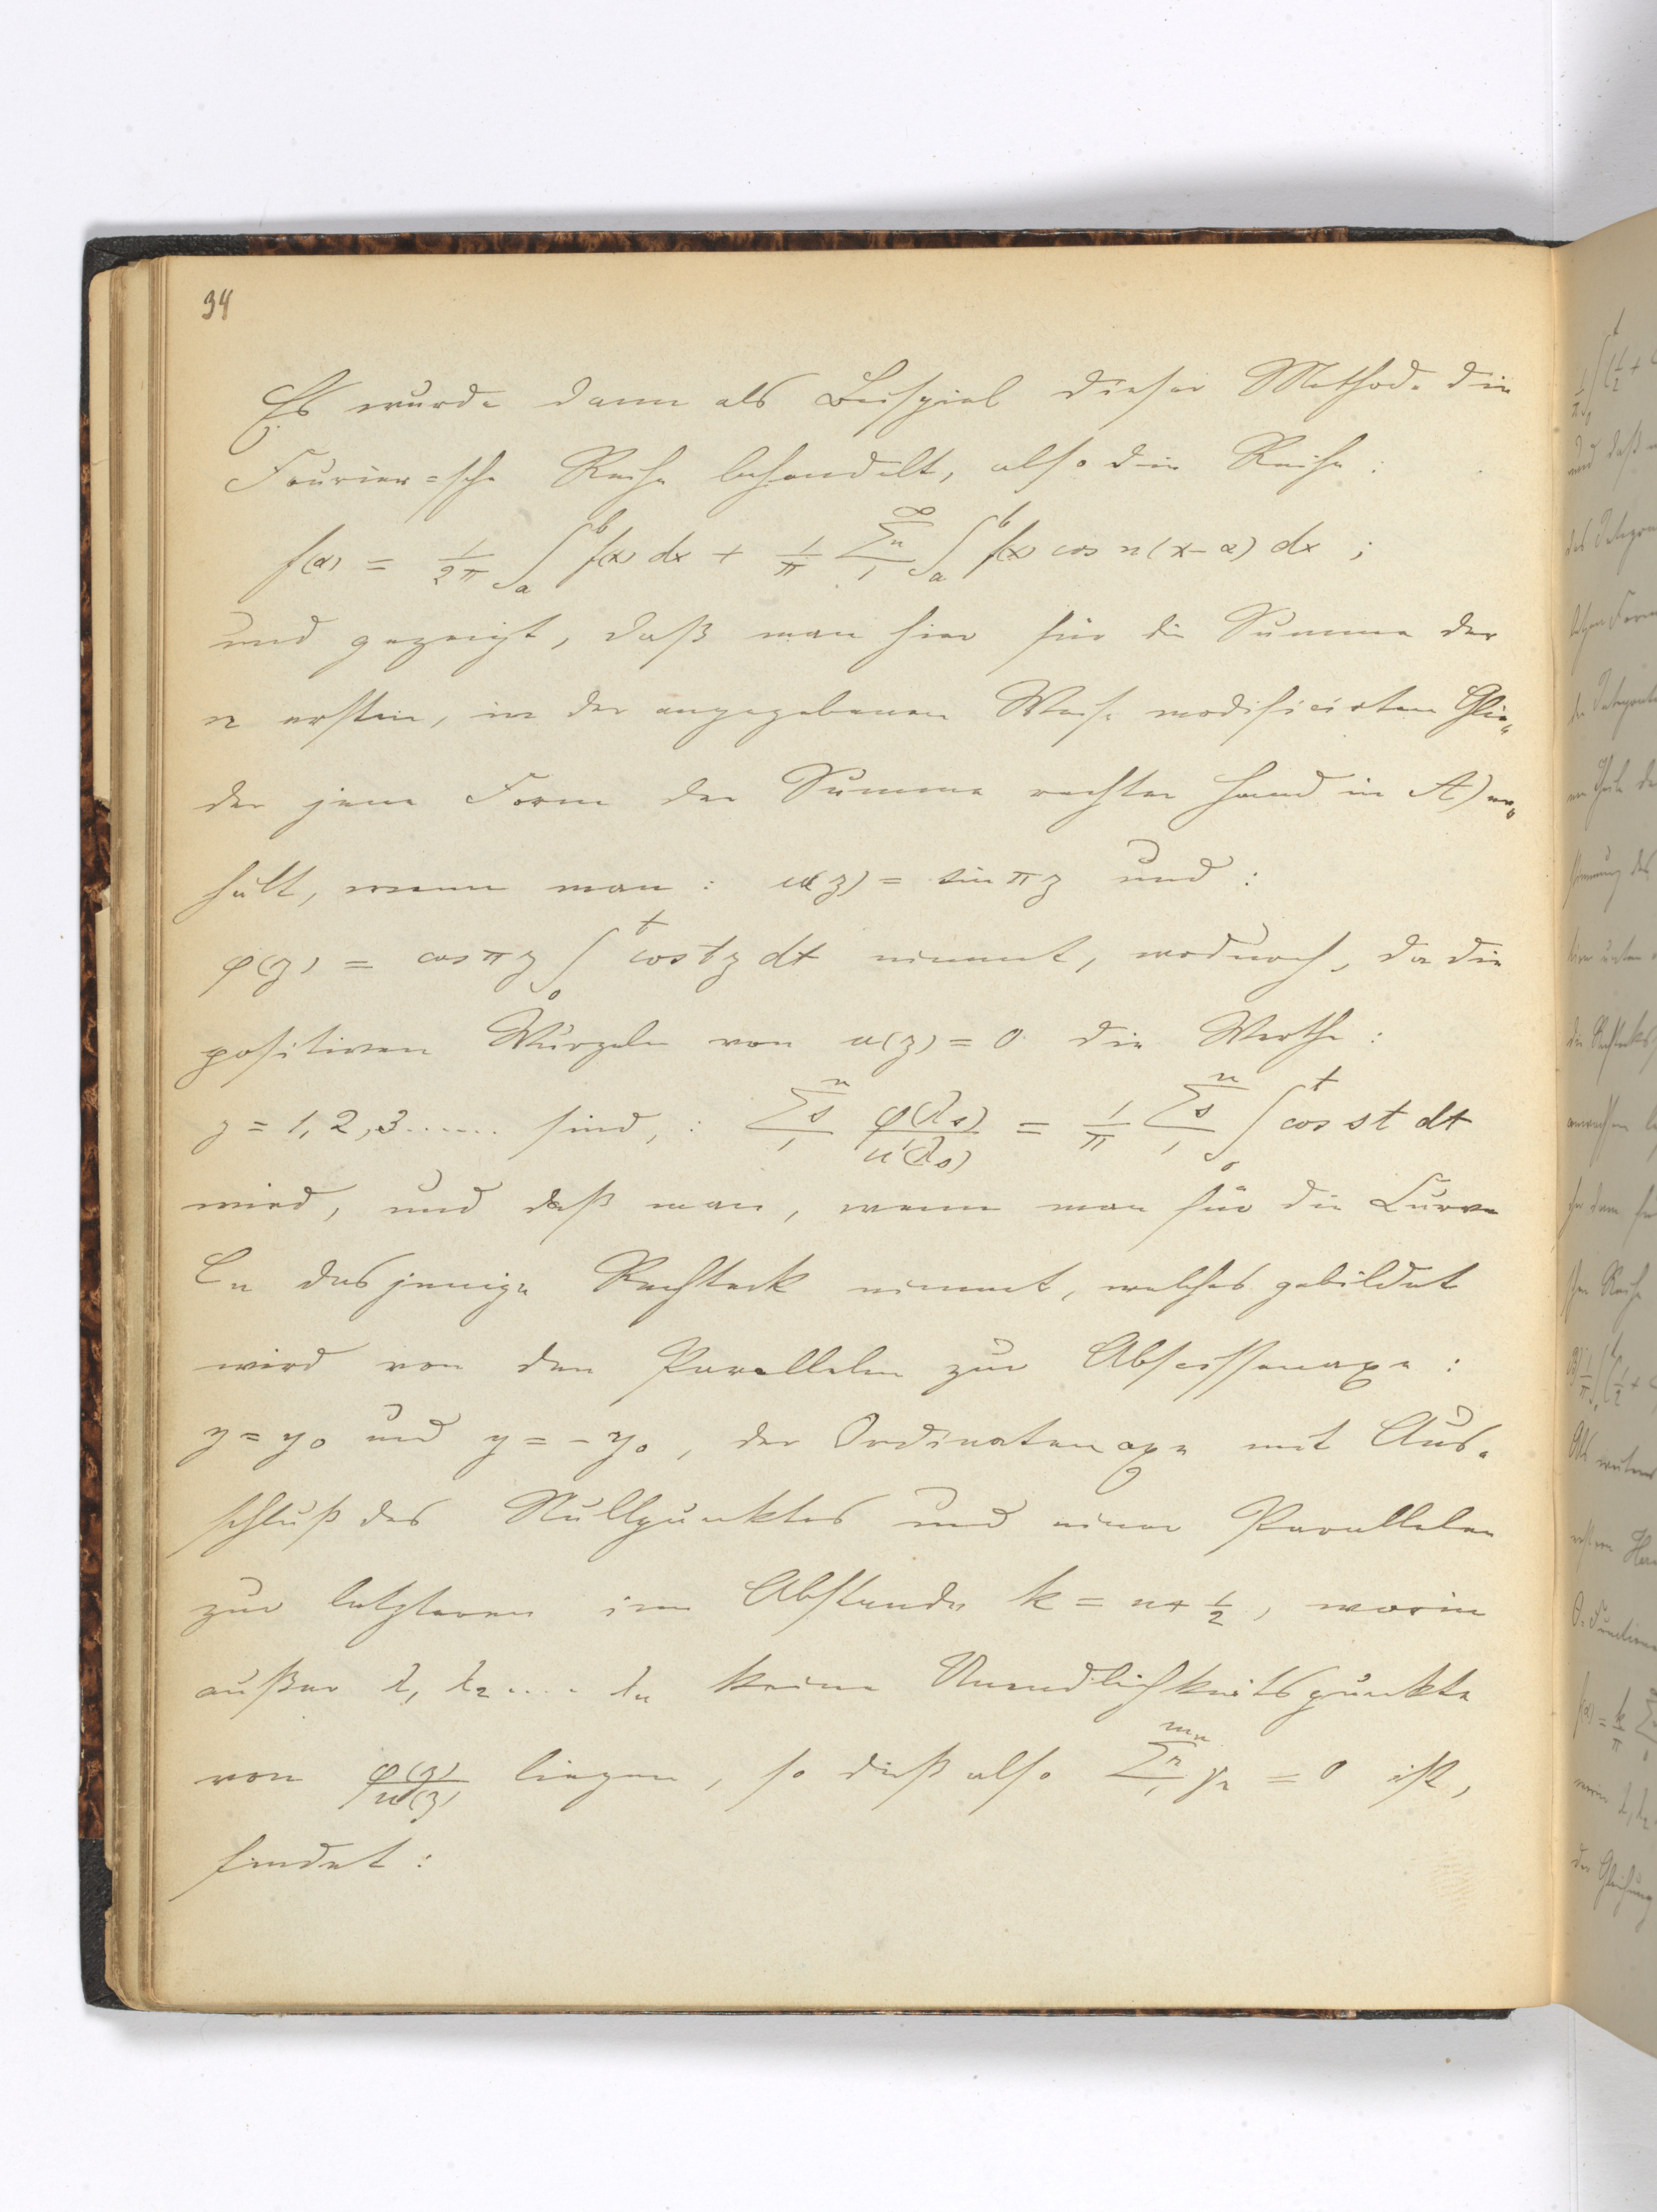 34
Es wurde dann als Beispiel dieser Methode die
Fourier=sche Reihe behandelt, also die Reihe:
f(α) = 1/2π ∫_a^b f(x) dx + 1/π Σ_1^∞ n ∫_a^b f(x) cos n(x-α) dx ;
und gezeigt, daß man hier für die Summe der
n ersten, in der angegebenen Weise modificirten Glie-
der jene Form der Summe rechter Hand in A) er-
hält, wenn man: u(z) = sin πz und:
φ(z) = cos πz ∫_0^t cos tz dt nimmt, wodurch, da die
positiven Wurzeln von u(z) = 0 die Werthe:
z = 1, 2, 3....... sind, : Σ_1^n s φ(λs)/u'(λs) = 1/π Σ_1^n s ∫_0^t cos st dt
wird, und daß man, wenn man für die Curve
Cn dasjenige Rechteck nimmt, welches gebildet
wird von den Parallelen zur Abscissenaxe:
y = y0 und y = -y0, der Ordinatenaxe mit Aus-
schluß des Nullpunktes und einer Parallelen
zur letzteren im Abstande k = n + 1/2, worin
außer λ1 λ2 .... λn keine Unendlichkeitspunkte
von φ(z)/u(z) liegen, so daß also Σ_1^mn r γr = 0 ist,
findet: